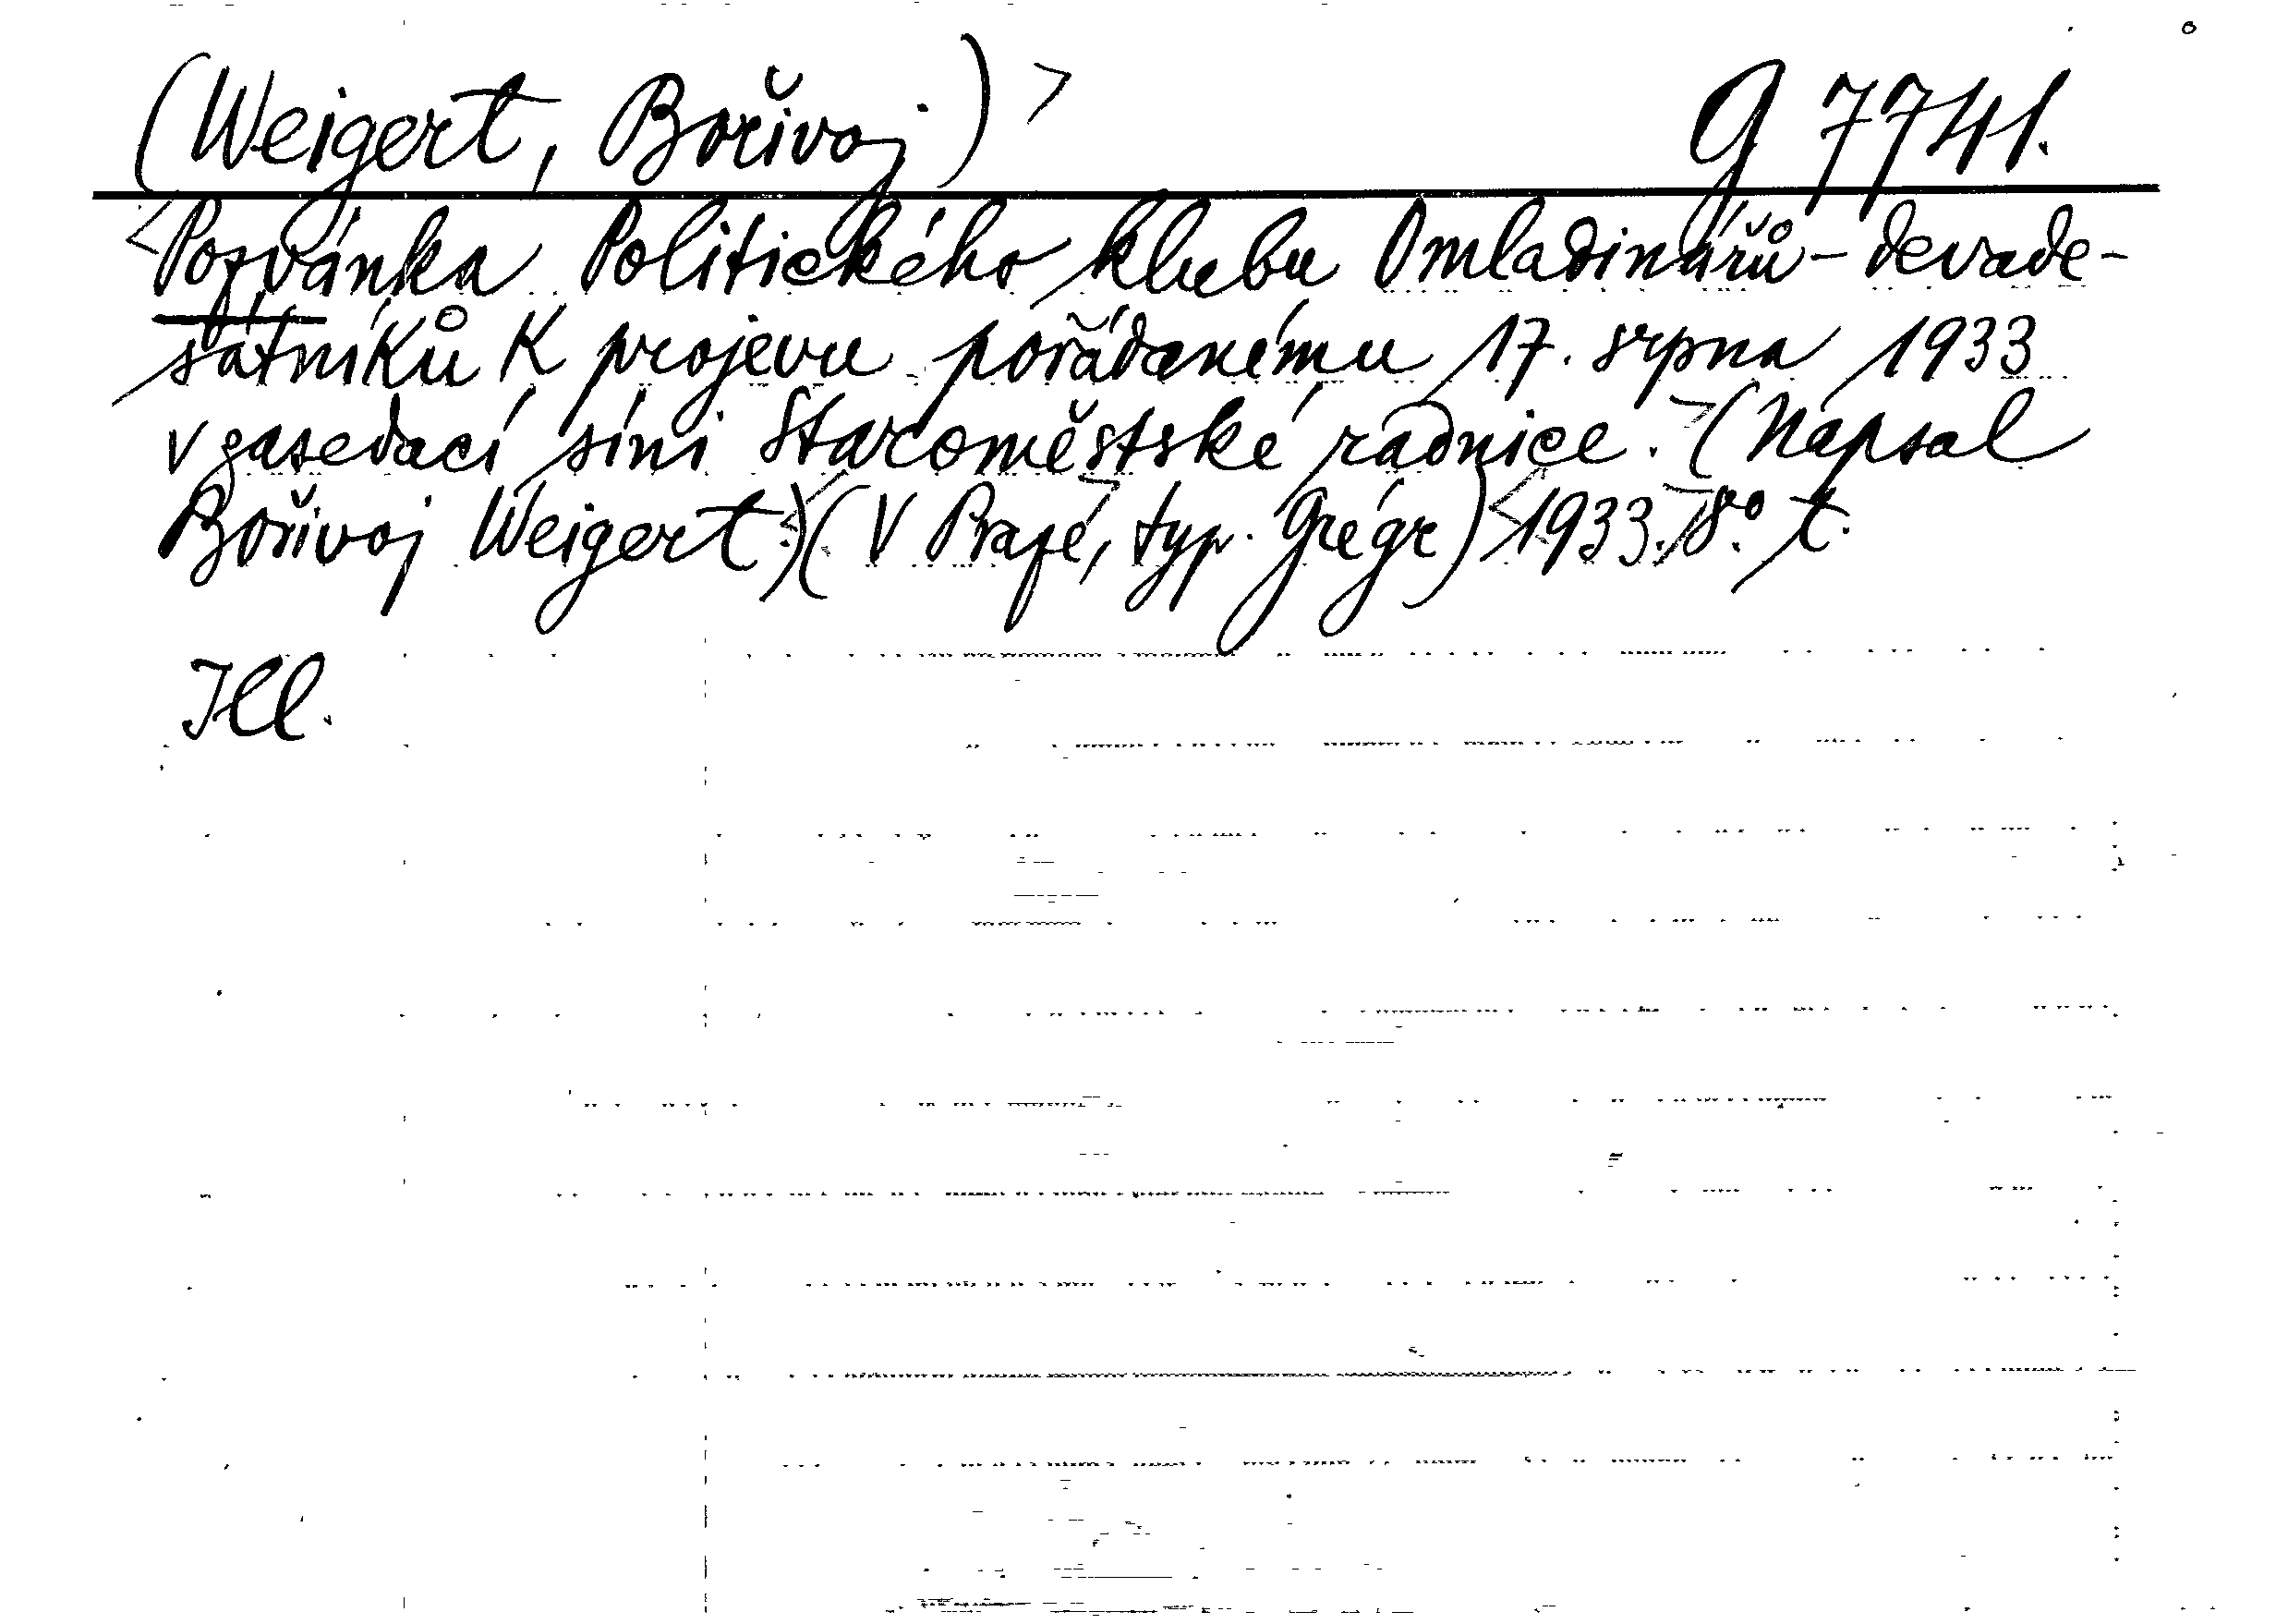 (Weigert, Bořivoj) > g 7741.
<Pozvánka Politického klubu Omladinářů - devade-
sátníků k projevu pořádanému 17. srpna 1933
v zasedací síni Staroměstské radnice.> (Napsal
Bořivoj Weigert.) (V Praze, typ. Grégr) <1933.> 8°. t.
Ill.